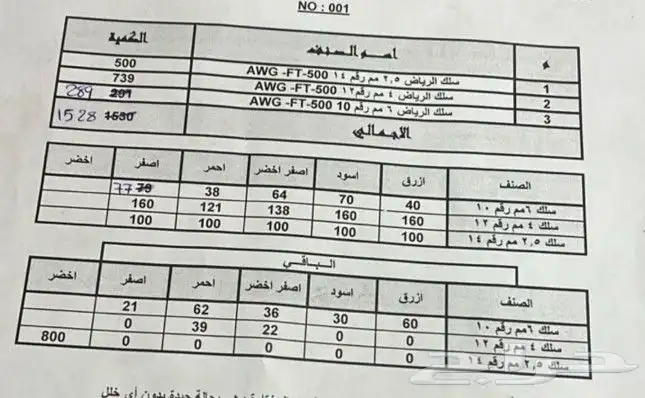 NO : 001
م اسم الصنف الكمية
1 سلك الرياض ٢,٥ مم رقم ١٤ AWG -FT-500 500
2 سلك الرياض ٤ مم رقم ١٢ AWG -FT-500 739
3 سلك الرياض ٦ مم رقم 10 AWG -FT-500 291 289
الاجمالي 1530 1528
الصنف ازرق اسود اصفر اخضر احمر اصفر اخضر
سلك ٦مم رقم ١٠ 40 70 64 38 79 77
سلك ٤ مم رقم ١٢ 160 160 138 121 160
سلك ٢,٥ مم رقم ١٤ 100 100 100 100 100
الباقي
الصنف ازرق اسود اصفر اخضر احمر اصفر اخضر
سلك ٦مم رقم ١٠ 60 30 36 62 21
سلك ٤ مم رقم ١٢ 0 0 22 39 0
سلك ٢,٥ مم رقم ١٤ 0 0 0 0 0 800
بحالة جيدة بدون أي خلل
حراج